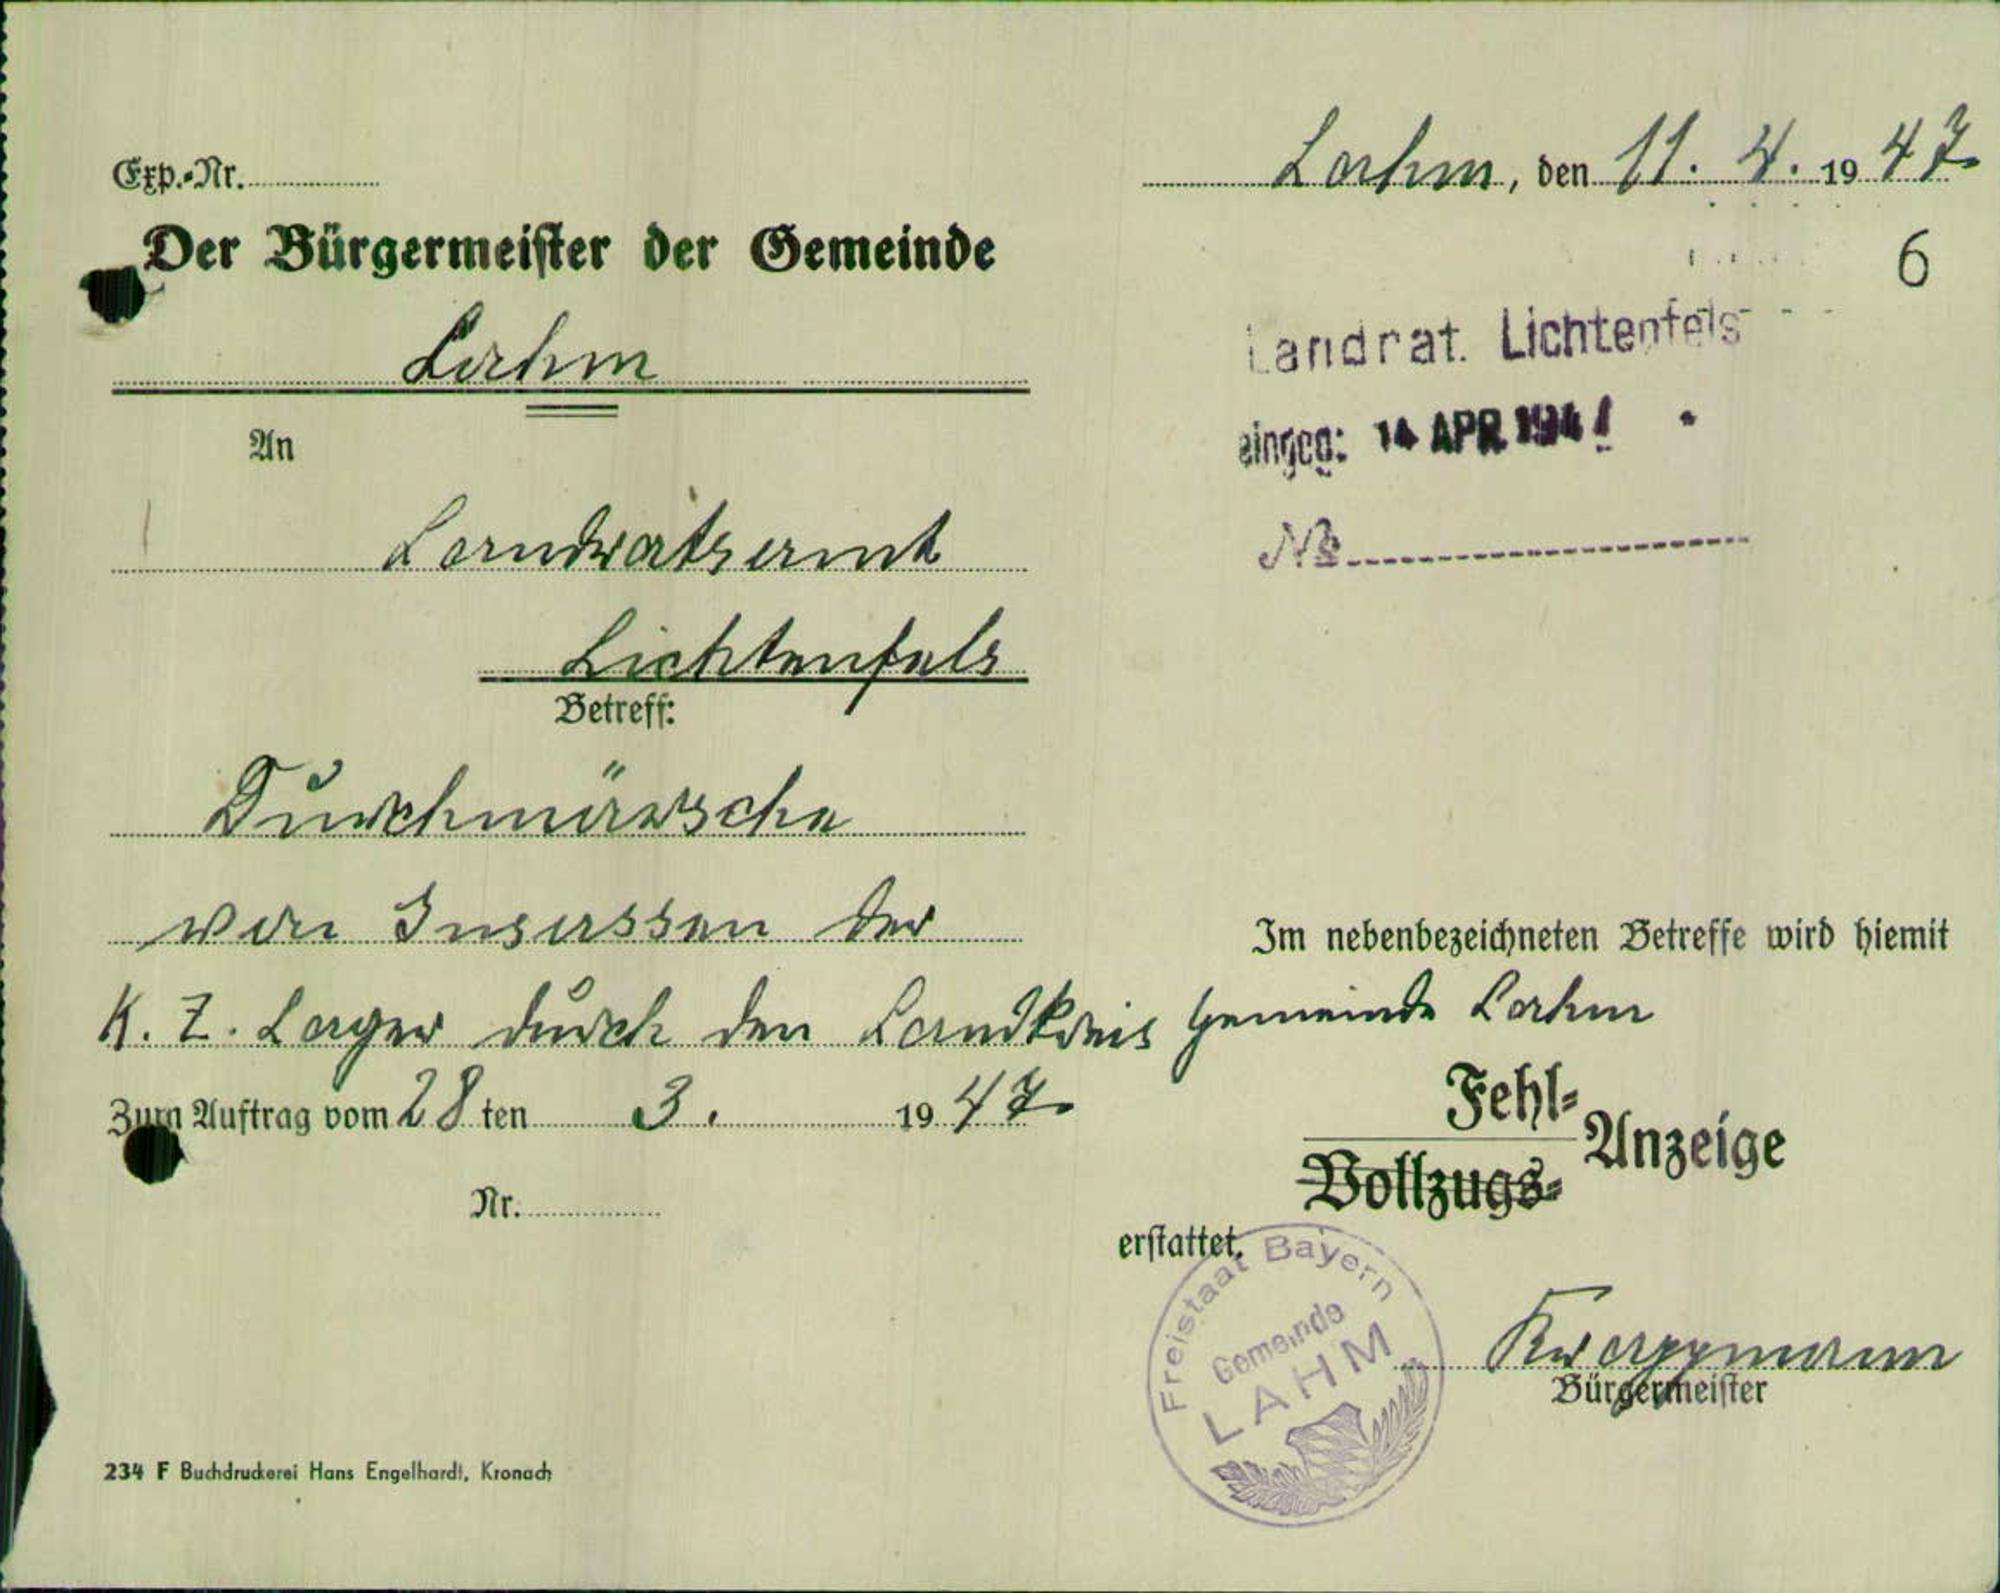 Exp.-Nr.
Lahm, den 11. 4. 1947
Der Bürgermeister der Gemeinde
6
Lahm
Landrat. Lichtenfels
An
eingeg: 14 APR 194
Landratsamt
№
Lichtenfels
Betreff:
Durchmärsche
von Insassen der
Im nebenbezeichneten Betreffe wird hiemit
K. Z. Lager durch den Landkreis Gemeinde Lahm
Zum Auftrag vom 28ten 3. 1947
Fehl-
Anzeige
Vollzugs-
Nr.
erstattet.
Freistaat Bayern
Gemeinde
LAHM
Bürgermeister
234 F Buchdruckerei Hans Engelhardt, Kronach